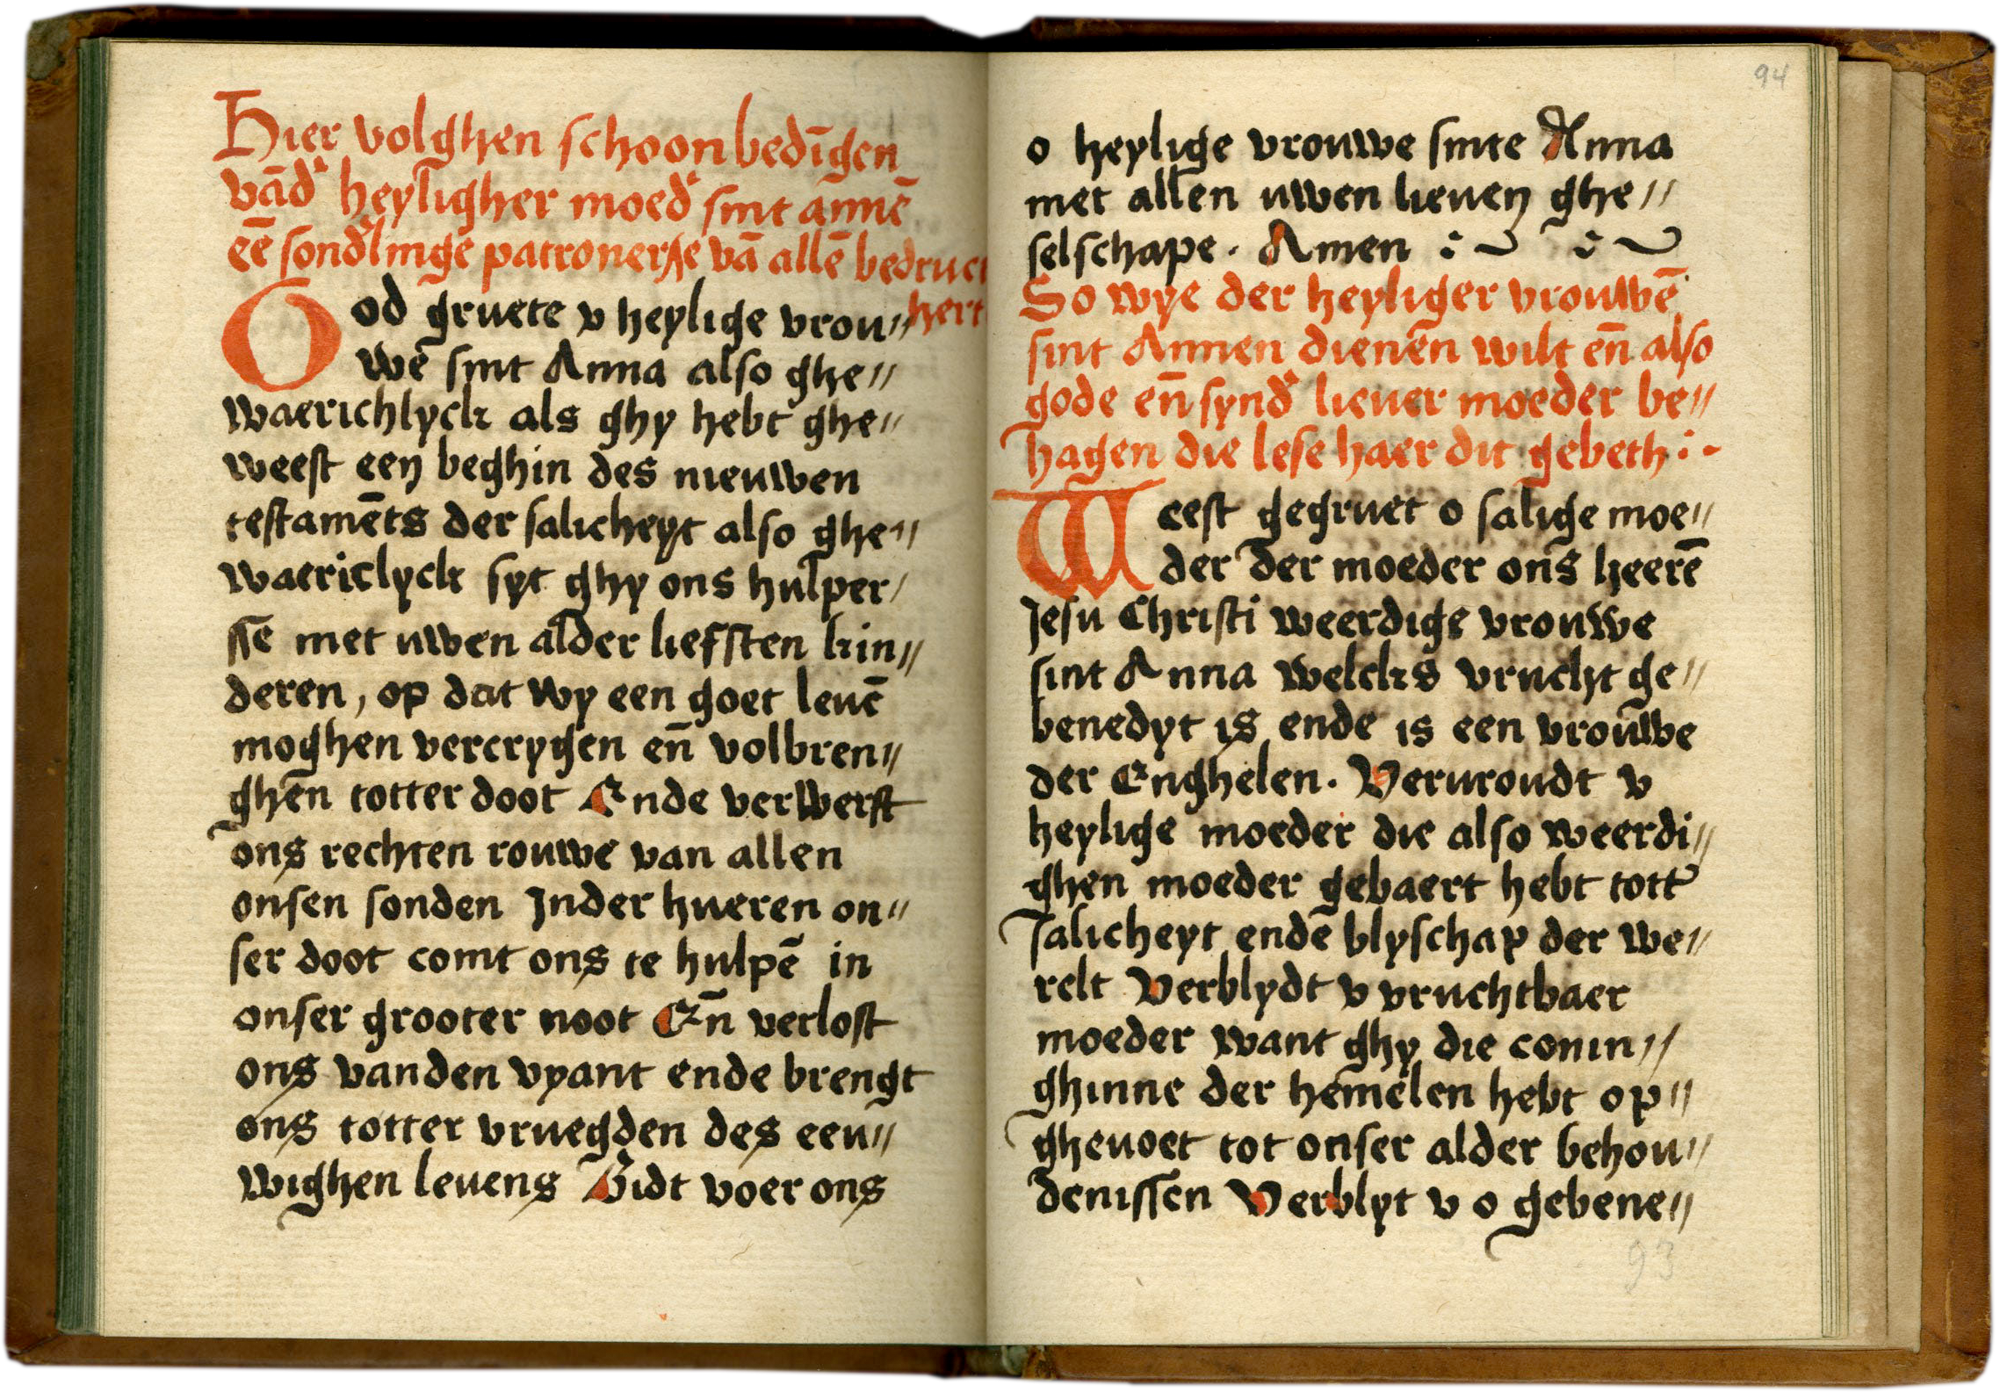 Hier volghen schoon bedīgen
vād' heyligher moed' sint annē
eē sond'linge patronersse vā allē bedruct
hert
God gruete v heylige vrou//
we sint Anna also ghe//
waerichlyck als ghy hebt ghe//
weest een beghin des nieuwen
testamēts der salicheyt also ghe//
waericlyck syt ghy ons hulper/
sse met uwen alder liefsten kin//
deren, op dat wy een goet leuē
moghen vercrygen eñ volbren//
ghen totter doot Ende verwerft
ons rechten rouwe van allen
onsen sonden Inder hueren on//
ser doot comt ons te hulpē in
onser grooter noot Eñ verlost
ons vanden vyant ende brengt
ons totter vruegden des eeu//
wighen leuens Bidt voer ons
94
o heylige vrouwe sinte Anna
met allen uwen lieuen ghe//
selschape. Amen
So wye der heyliger vrouwē
sint Annen dienen wilt eñ also
gode eñ synd' lieuer moeder be//
hagen die lese haer dit gebeth
Weest gegruet o salige moe//
der der moeder ons heerē
Jesu Christi weerdige vrouwe
sint Anna welcks vrucht ge//
benedyt is ende is een vrouwe
der Enghelen. Vervroudt v
heylige moeder die also weerdi//
ghen moeder gebaert hebt tott'
salicheyt ende blyschap der we//
relt Verblydt v vruchtbaer
moeder want ghy die conin//
ghinne der hemelen hebt op//
gheuoet tot onser alder behou//
denissen Verblyt v o gebene//
93